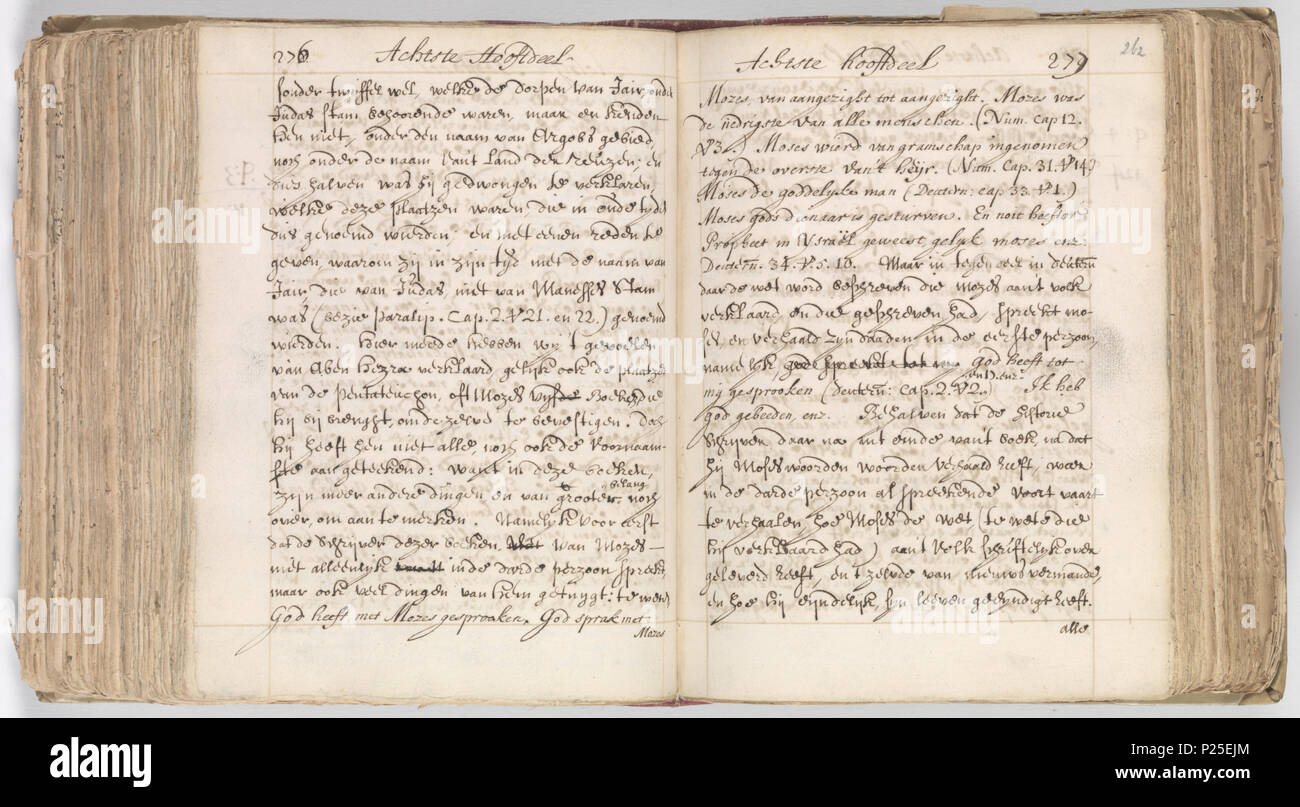 276 Achtste Hooftdeel
sonder twijffel wel, welke de dorpen van Jair, onder
Judas stam behoorende waren, maar en kenden
hen niet, onder den naam van Argobs gebied,
noch onder de naam van't Land der Reuzen; en
dies halven was hij gedwongen te verklaren,
welke deze plaatzen waren, die in oude tijde
dus genoemd wierden; en met eenen reden te
geven, waarom zij in zijn tijd met de naam van
Jair, die van Judas, niet van Manasses stam
was (bezie Paralip. Cap. 2. v 21. en 22.) genoemd
wierden. Hier mede hebben wy 't gevoelen
van Aben Hezra verklaard, gelijk ook de plaatzen
van de Pentateuchon, oft Mozes vijf Boeken, die
hij bij brenght, om de zelve te bevestigen. Doch
hij heeft hen niet alle, noch ook de voornaam-
ste aangeteekend: want in deze boeken,
zijn meer andere dingen, en van grooter belang noch
over, om aan te merken. Namelijk voor eerst
dat de Schrijver dezer boeken van Mozes
niet alleenlijk in de darde perzoon spreekt,
maar ook veel dingen van hem getuygt: te weten
God heeft met Mozes gesprooken. God sprak met
Mozes
Achtste hooftdeel 279
262
Mozes, van aangezight tot aangezight. Mozes was
de nedrigste van alle menschen. (Num. cap 12.
v 3.) Moses wierd van gramschap ingenomen
tegen de overste van't heyr. (Num. Cap. 31. v 14)
Moses de goddelyke man (Deutern: cap. 33. v 1.)
Moses gods dienaar is gesturven. En noit heeft er
Propheet in Ysraël geweest gelijk moses enz.
Deutern. 34. v. 5. 10. Maar in tegendeel in deutern
daar de wet word beschreven die Mozes aan't volk
verklaard, en die geschreven had, spreekt mo-
ses, en verhaald zyn daaden in de eerste perzoon,
namelyk god heeft tot
my gesprooken (deutern: cap. 2. v 2. en 17. enz.) Ik heb
god gebeeden, enz. Behalven dat de historie
schryver daar na aan't einde van't boek, na dat
hij Moses woorden woorden verhaald heeft, weer
in de darde perzoon al spreekende voort vaart
te verhaalen, hoe Moses de wet (te wete die
hij verklaard had) aan't volk schriftelyk over
geleverd heeft, en 't zelve van nieuws vermande,
en hoe hij eijndelijk, syn leeven geeyndigt heeft.
alle
alamy
Image ID: P25EJM
www.alamy.com